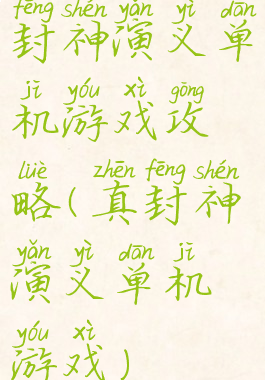 fēng shén yǎn yì dān
封神演义单
jī yóu xì gōng
机游戏攻
lüè zhēn fēng shén
略(真封神
yǎn yì dān jī
演义单机
yóu xì
游戏)